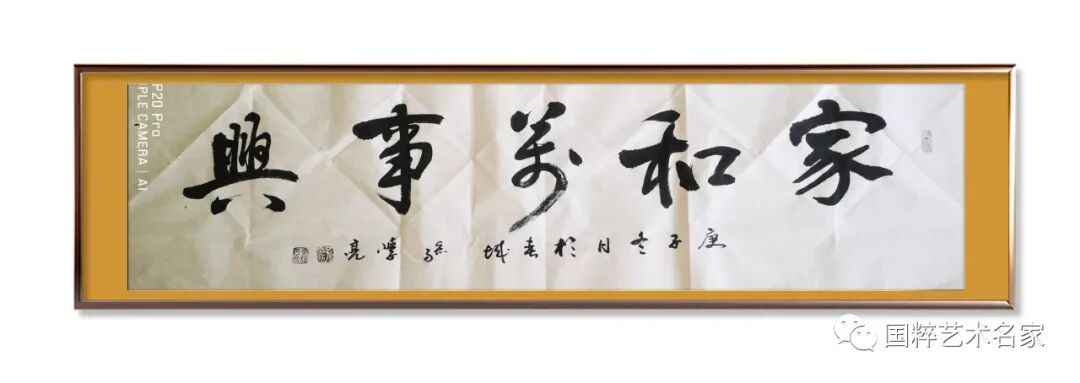 家和萬事興
庚子冬月於春城 張學亮
P20 Pro
PLE CAMERA | AI
国粹艺术名家